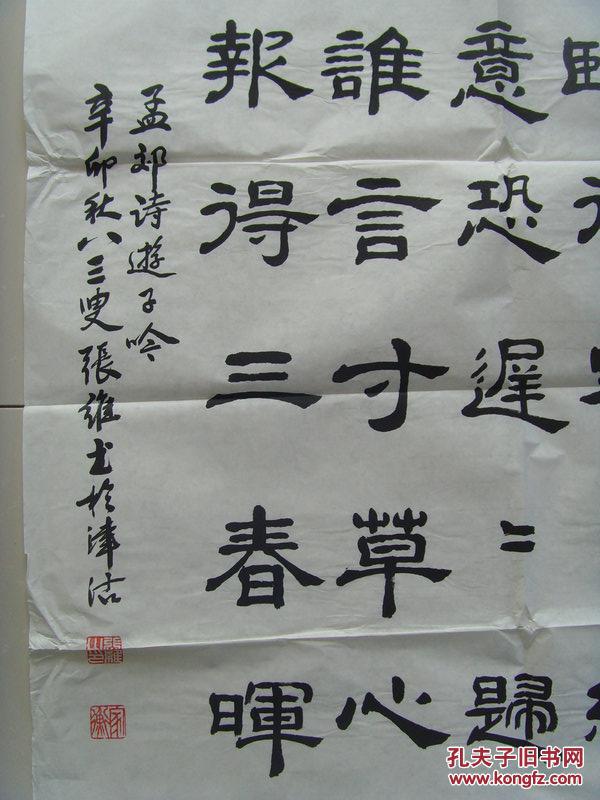 意恐遲〻歸
誰言寸草心
報得三春暉
孟郊詩遊子吟
辛卯秋八三叟張維书於津沽
孔夫子旧书网
www.kongfz.com